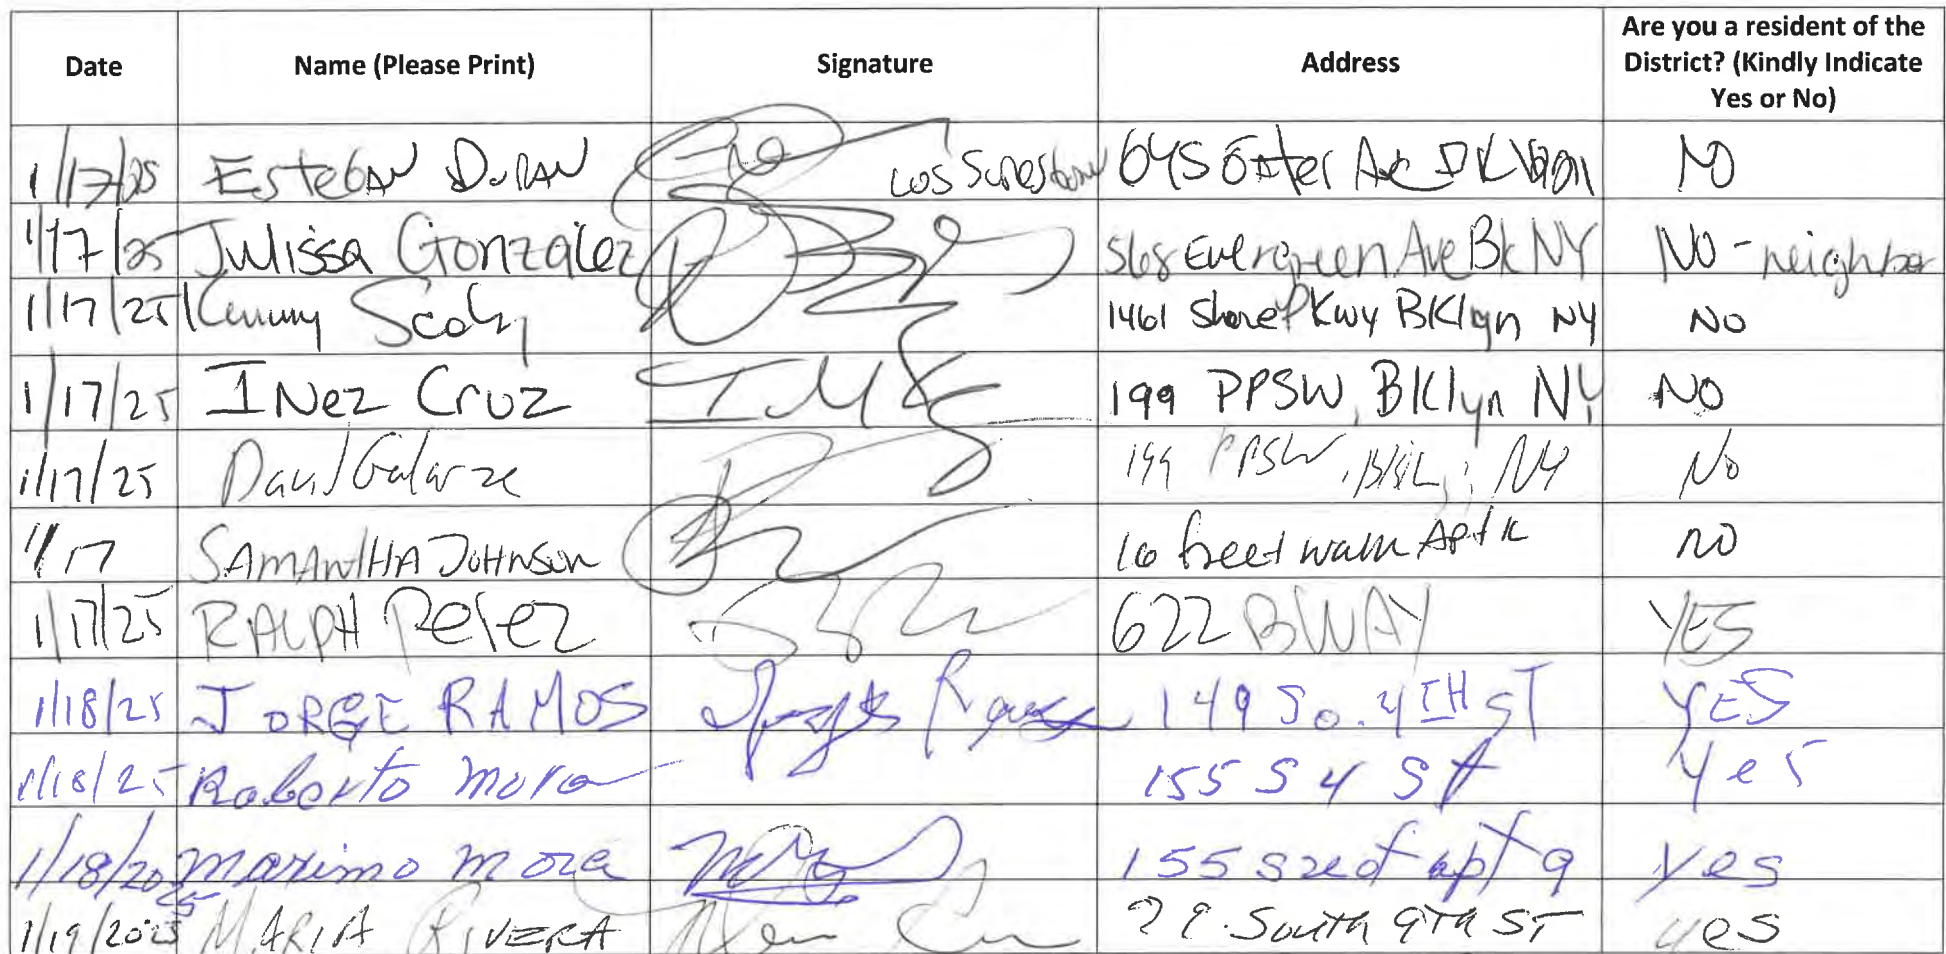 Date Name (Please Print) Signature Address Are you a resident of the
District? (Kindly Indicate
Yes or No)
1/17/25 Esteban Duran Los Sures 645 Ave NO
1/17/25 Julissa Gonzalez 568 Evergreen Ave Bk NY NO - neighbor
1/17/25 Scoly 1461 Shore Pkwy BKlyn NY NO
1/17/25 INez Cruz 199 PPSW, BKlyn NY NO
1/17/25 Galarza 199 PPSW, NY No
1/17 SAMANTHA JOHNSON 16 Apt K NO
1/17/25 RALPH Perez 622 BWAY YES
1/18/25 JORGE RAMOS 149 So. 4TH ST YES
1/18/25 Roberto Mora 155 S 4 St Yes
1/18/2025 Maximo Mora 155 apt 9 yes
1/19/2025 MARIA RIVERA South 9TH ST yes